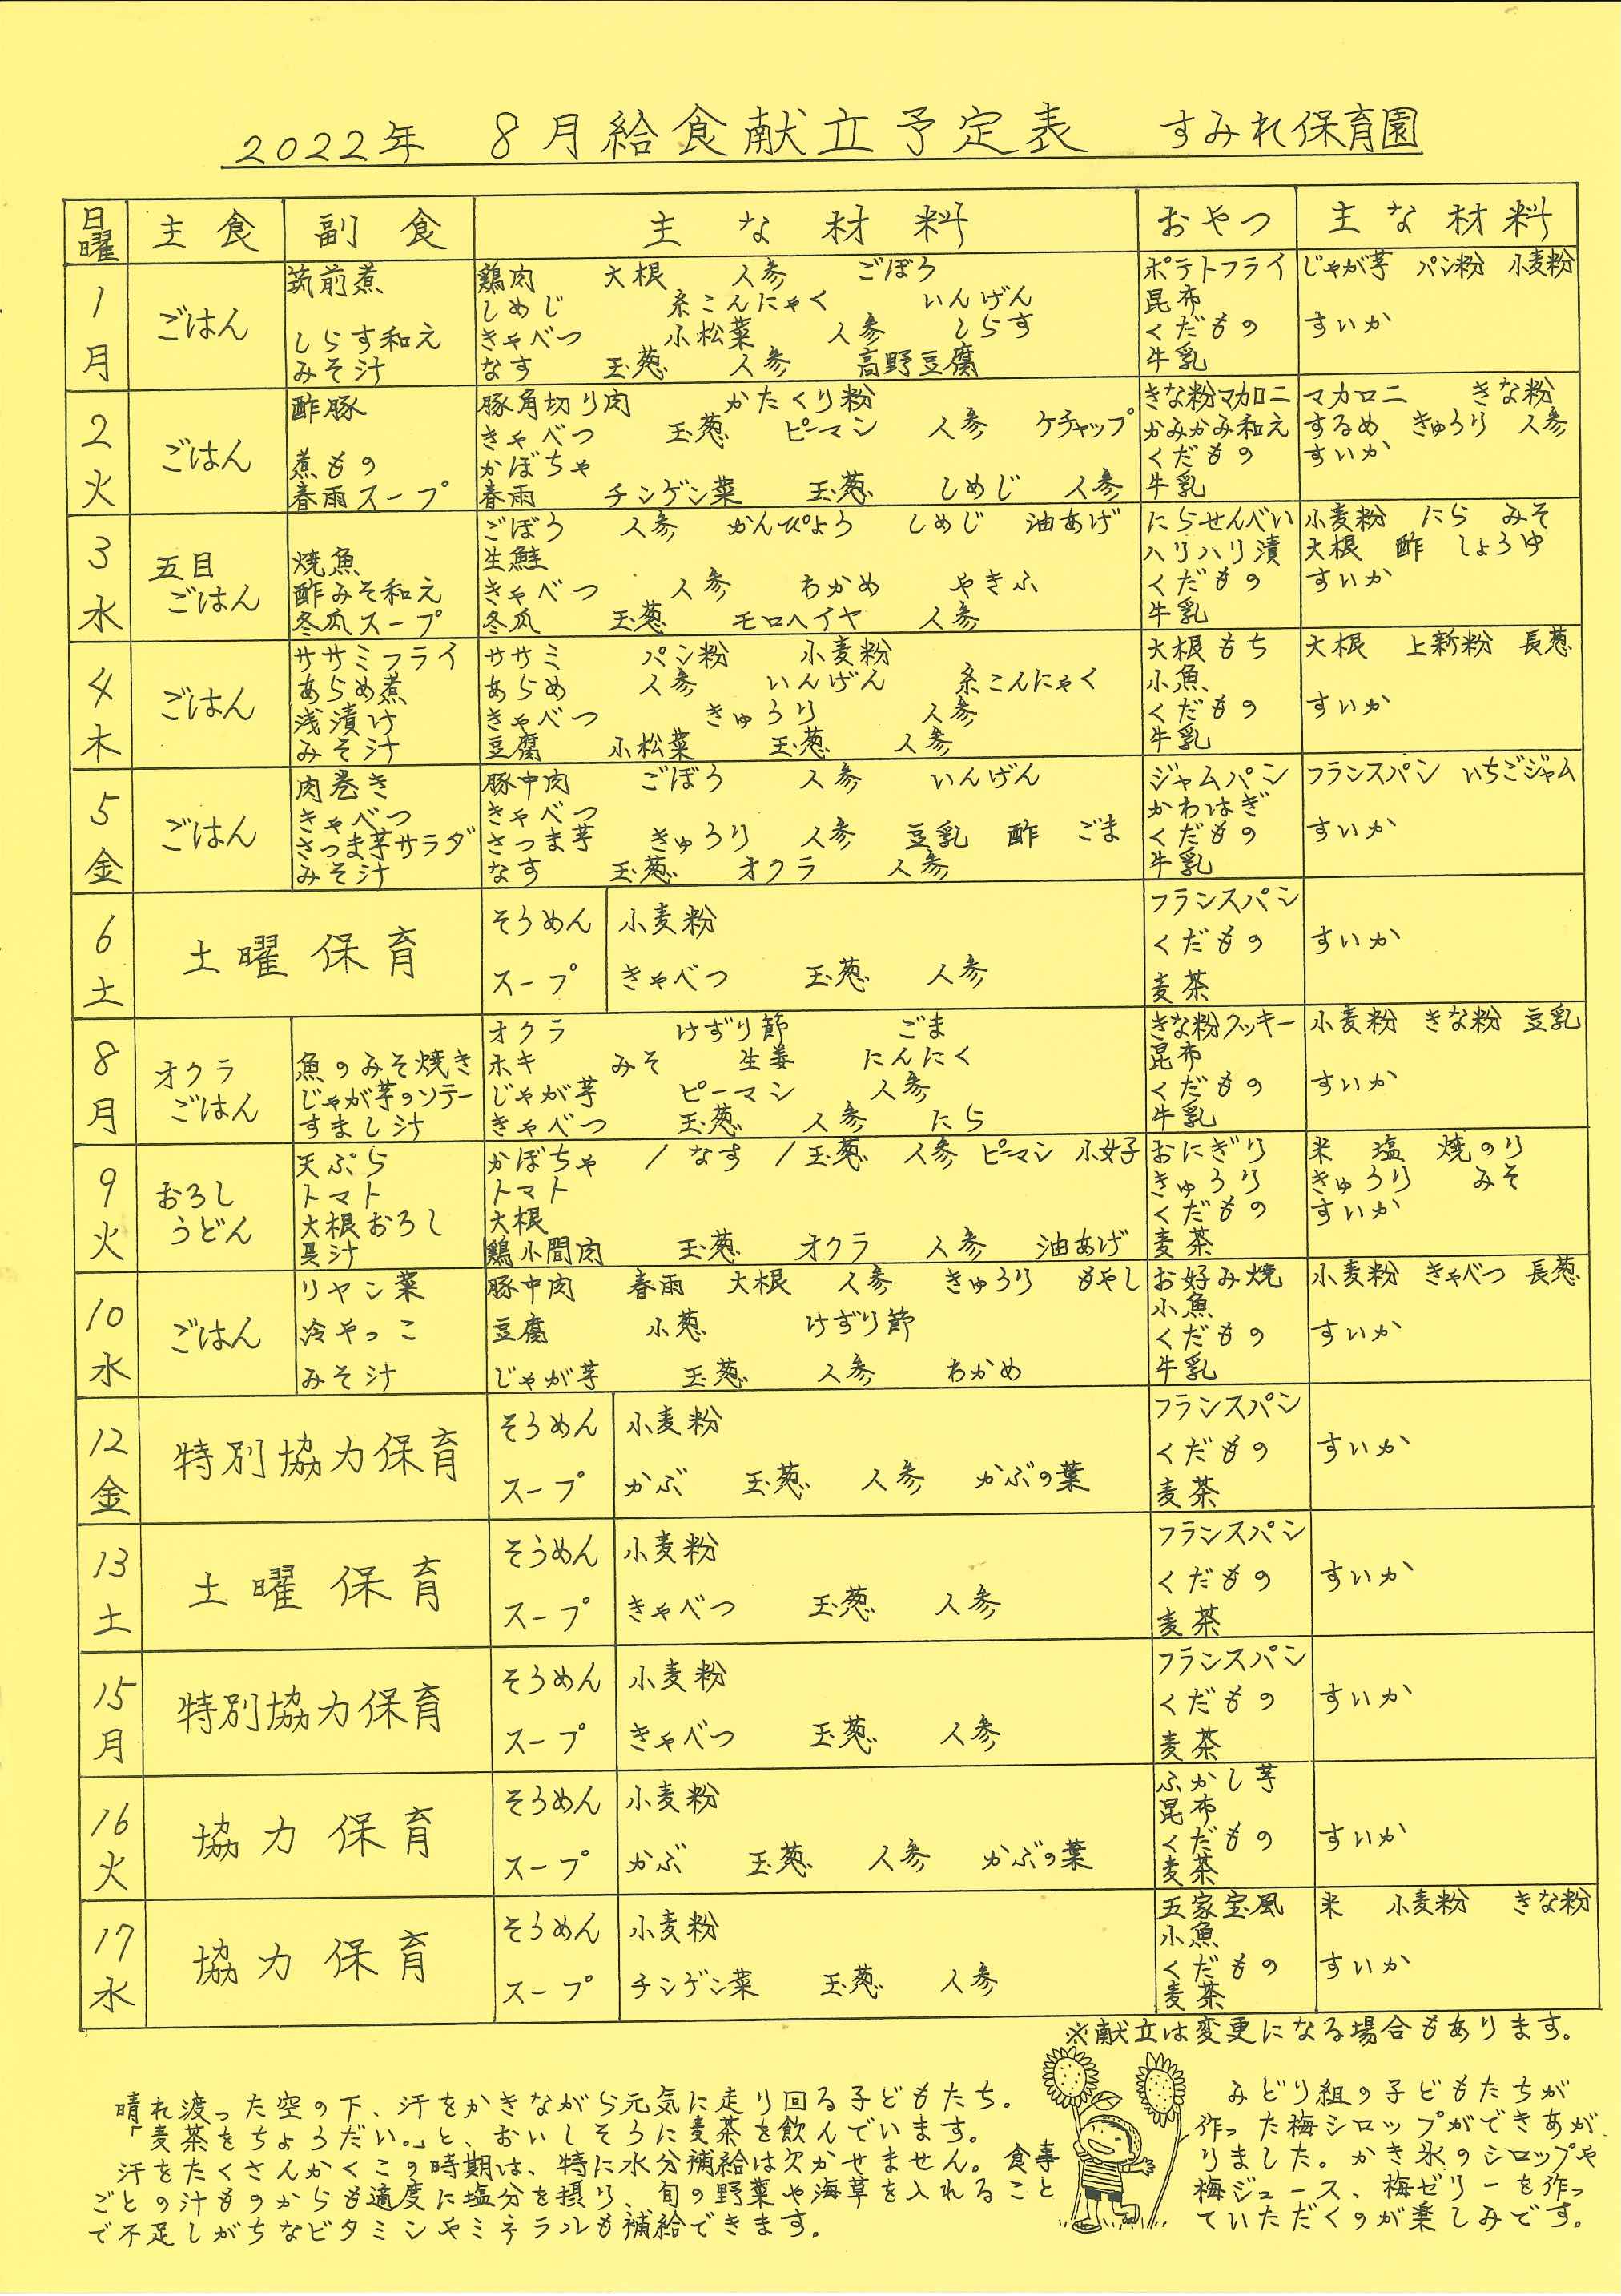 2022年 8月給食献立予定表 すみれ保育園
日曜 主食 副食 主な材料 おやつ 主な材料
1 月 ごはん
筑前煮 鶏肉 大根 人参 ごぼう ポテトフライ じゃが芋 パン粉 小麦粉
しめじ 糸こんにゃく いんげん 昆布
しらす和え きゃべつ 小松菜 人参 しらす くだもの すいか
みそ汁 なす 玉葱 人参 高野豆腐 牛乳
2 火 ごはん
酢豚 豚角切り肉 かたくり粉 きな粉マカロニ マカロニ きな粉
きゃべつ 玉葱 ピーマン 人参 ケチャップ かみかみ和え するめ きゅうり 人参
煮もの かぼちゃ くだもの すいか
春雨スープ 春雨 チンゲン菜 玉葱 しめじ 人参 牛乳
3 水 五目ごはん
ごぼう 人参 かんぴょう しめじ 油あげ にらせんべい 小麦粉 にら みそ
焼魚 生鮭 ハリハリ漬 大根 酢 しょうゆ
酢みそ和え きゃべつ 人参 わかめ やきふ くだもの すいか
冬瓜スープ 冬瓜 玉葱 モロヘイヤ 人参 牛乳
4 木 ごはん
ササミフライ ササミ パン粉 小麦粉 大根もち 大根 上新粉 長葱
あらめ煮 あらめ 人参 いんげん 糸こんにゃく 小魚
浅漬け きゃべつ きゅうり 人参 くだもの すいか
みそ汁 豆腐 小松菜 玉葱 人参 牛乳
5 金 ごはん
肉巻き 豚中肉 ごぼう 人参 いんげん ジャムパン フランスパン いちごジャム
きゃべつ きゃべつ かわはぎ
さつま芋サラダ さつま芋 きゅうり 人参 豆乳 酢 ごま くだもの すいか
みそ汁 なす 玉葱 オクラ 人参 牛乳
6 土 土曜保育
そうめん 小麦粉 フランスパン
くだもの すいか
スープ きゃべつ 玉葱 人参 麦茶
8 月 オクラごはん
オクラ けずり節 ごま きな粉クッキー 小麦粉 きな粉 豆乳
魚のみそ焼き ホキ みそ 生姜 にんにく 昆布
じゃが芋のソテー じゃが芋 ピーマン 人参 くだもの すいか
すまし汁 きゃべつ 玉葱 人参 にら 牛乳
9 火 おろしうどん
天ぷら かぼちゃ / なす / 玉葱 人参 ピーマン 小女子 おにぎり 米 塩 焼のり
トマト トマト きゅうり きゅうり みそ
大根おろし 大根 くだもの すいか
具汁 鶏小間肉 玉葱 オクラ 人参 油あげ 麦茶
10 水 ごはん
リャン菜 豚中肉 春雨 大根 人参 きゅうり もやし お好み焼 小麦粉 きゃべつ 長葱
小魚
冷やっこ 豆腐 小葱 けずり節 くだもの すいか
みそ汁 じゃが芋 玉葱 人参 わかめ 牛乳
12 金 特別協力保育
そうめん 小麦粉 フランスパン
くだもの すいか
スープ かぶ 玉葱 人参 かぶの葉 麦茶
13 土 土曜保育
そうめん 小麦粉 フランスパン
くだもの すいか
スープ きゃべつ 玉葱 人参 麦茶
15 月 特別協力保育
そうめん 小麦粉 フランスパン
くだもの すいか
スープ きゃべつ 玉葱 人参 麦茶
16 火 協力保育
そうめん 小麦粉 ふかし芋
昆布
くだもの すいか
スープ かぶ 玉葱 人参 かぶの葉 麦茶
17 水 協力保育
そうめん 小麦粉 五家宝風 米 小麦粉 きな粉
小魚
くだもの すいか
スープ チンゲン菜 玉葱 人参 麦茶
※献立は変更になる場合もあります。
晴れ渡った空の下、汗をかきながら元気に走り回る子どもたち。
「麦茶をちょうだい。」と、おいしそうに麦茶を飲んでいます。
汗をたくさんかくこの時期は、特に水分補給は欠かせません。食事
ごとの汁ものからも適度に塩分を摂り、旬の野菜や海草を入れること
で不足しがちなビタミンやミネラルも補給できます。
みどり組の子どもたちが
作った梅シロップができあが
りました。かき氷のシロップや
梅ジュース、梅ゼリーを作っ
ていただくのが楽しみです。